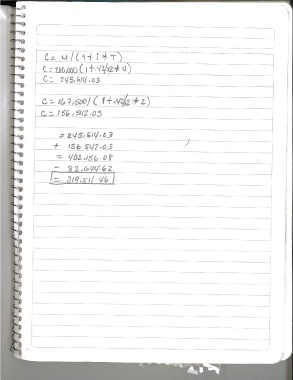 C = M / (1 + i * T)
C = 280,000 (1 + .42/12 * 4)
C = 245,614.03
C = 167,500 / (1 + .42/12 * 2)
C = 156,542.05
= 245,614.03
+ 156 542.05
= 402,156.08
- 82,644.62
= 319,511.46